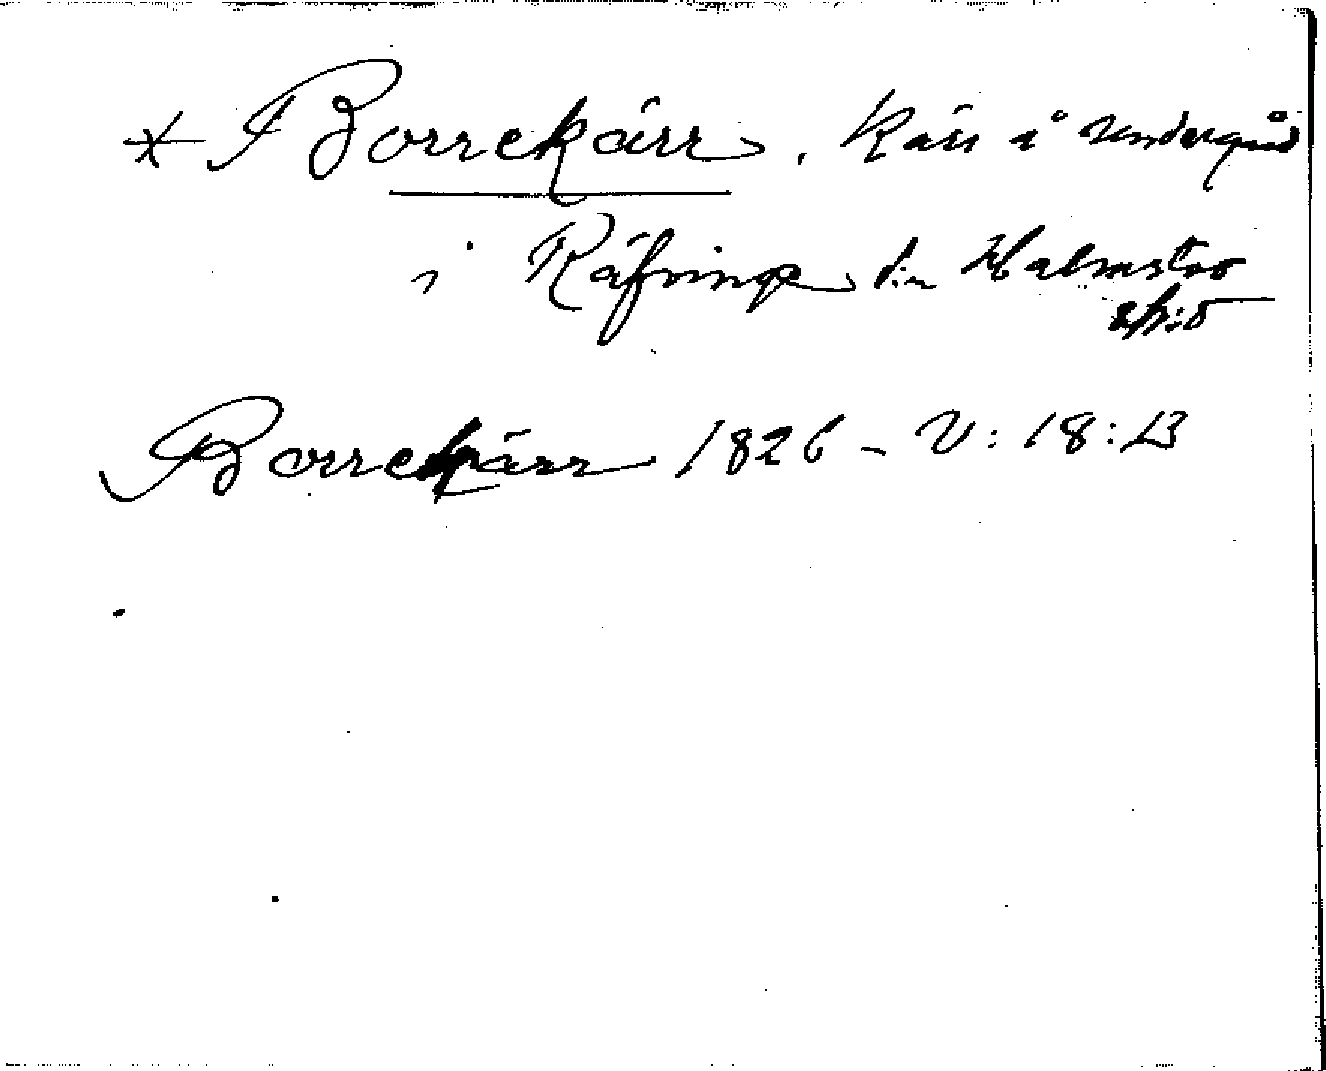 * Borrekärr. Kärr å Undergärd
i Räfvinge sn Halmstad
hd
Borrekärr 1826 - V: 18: B